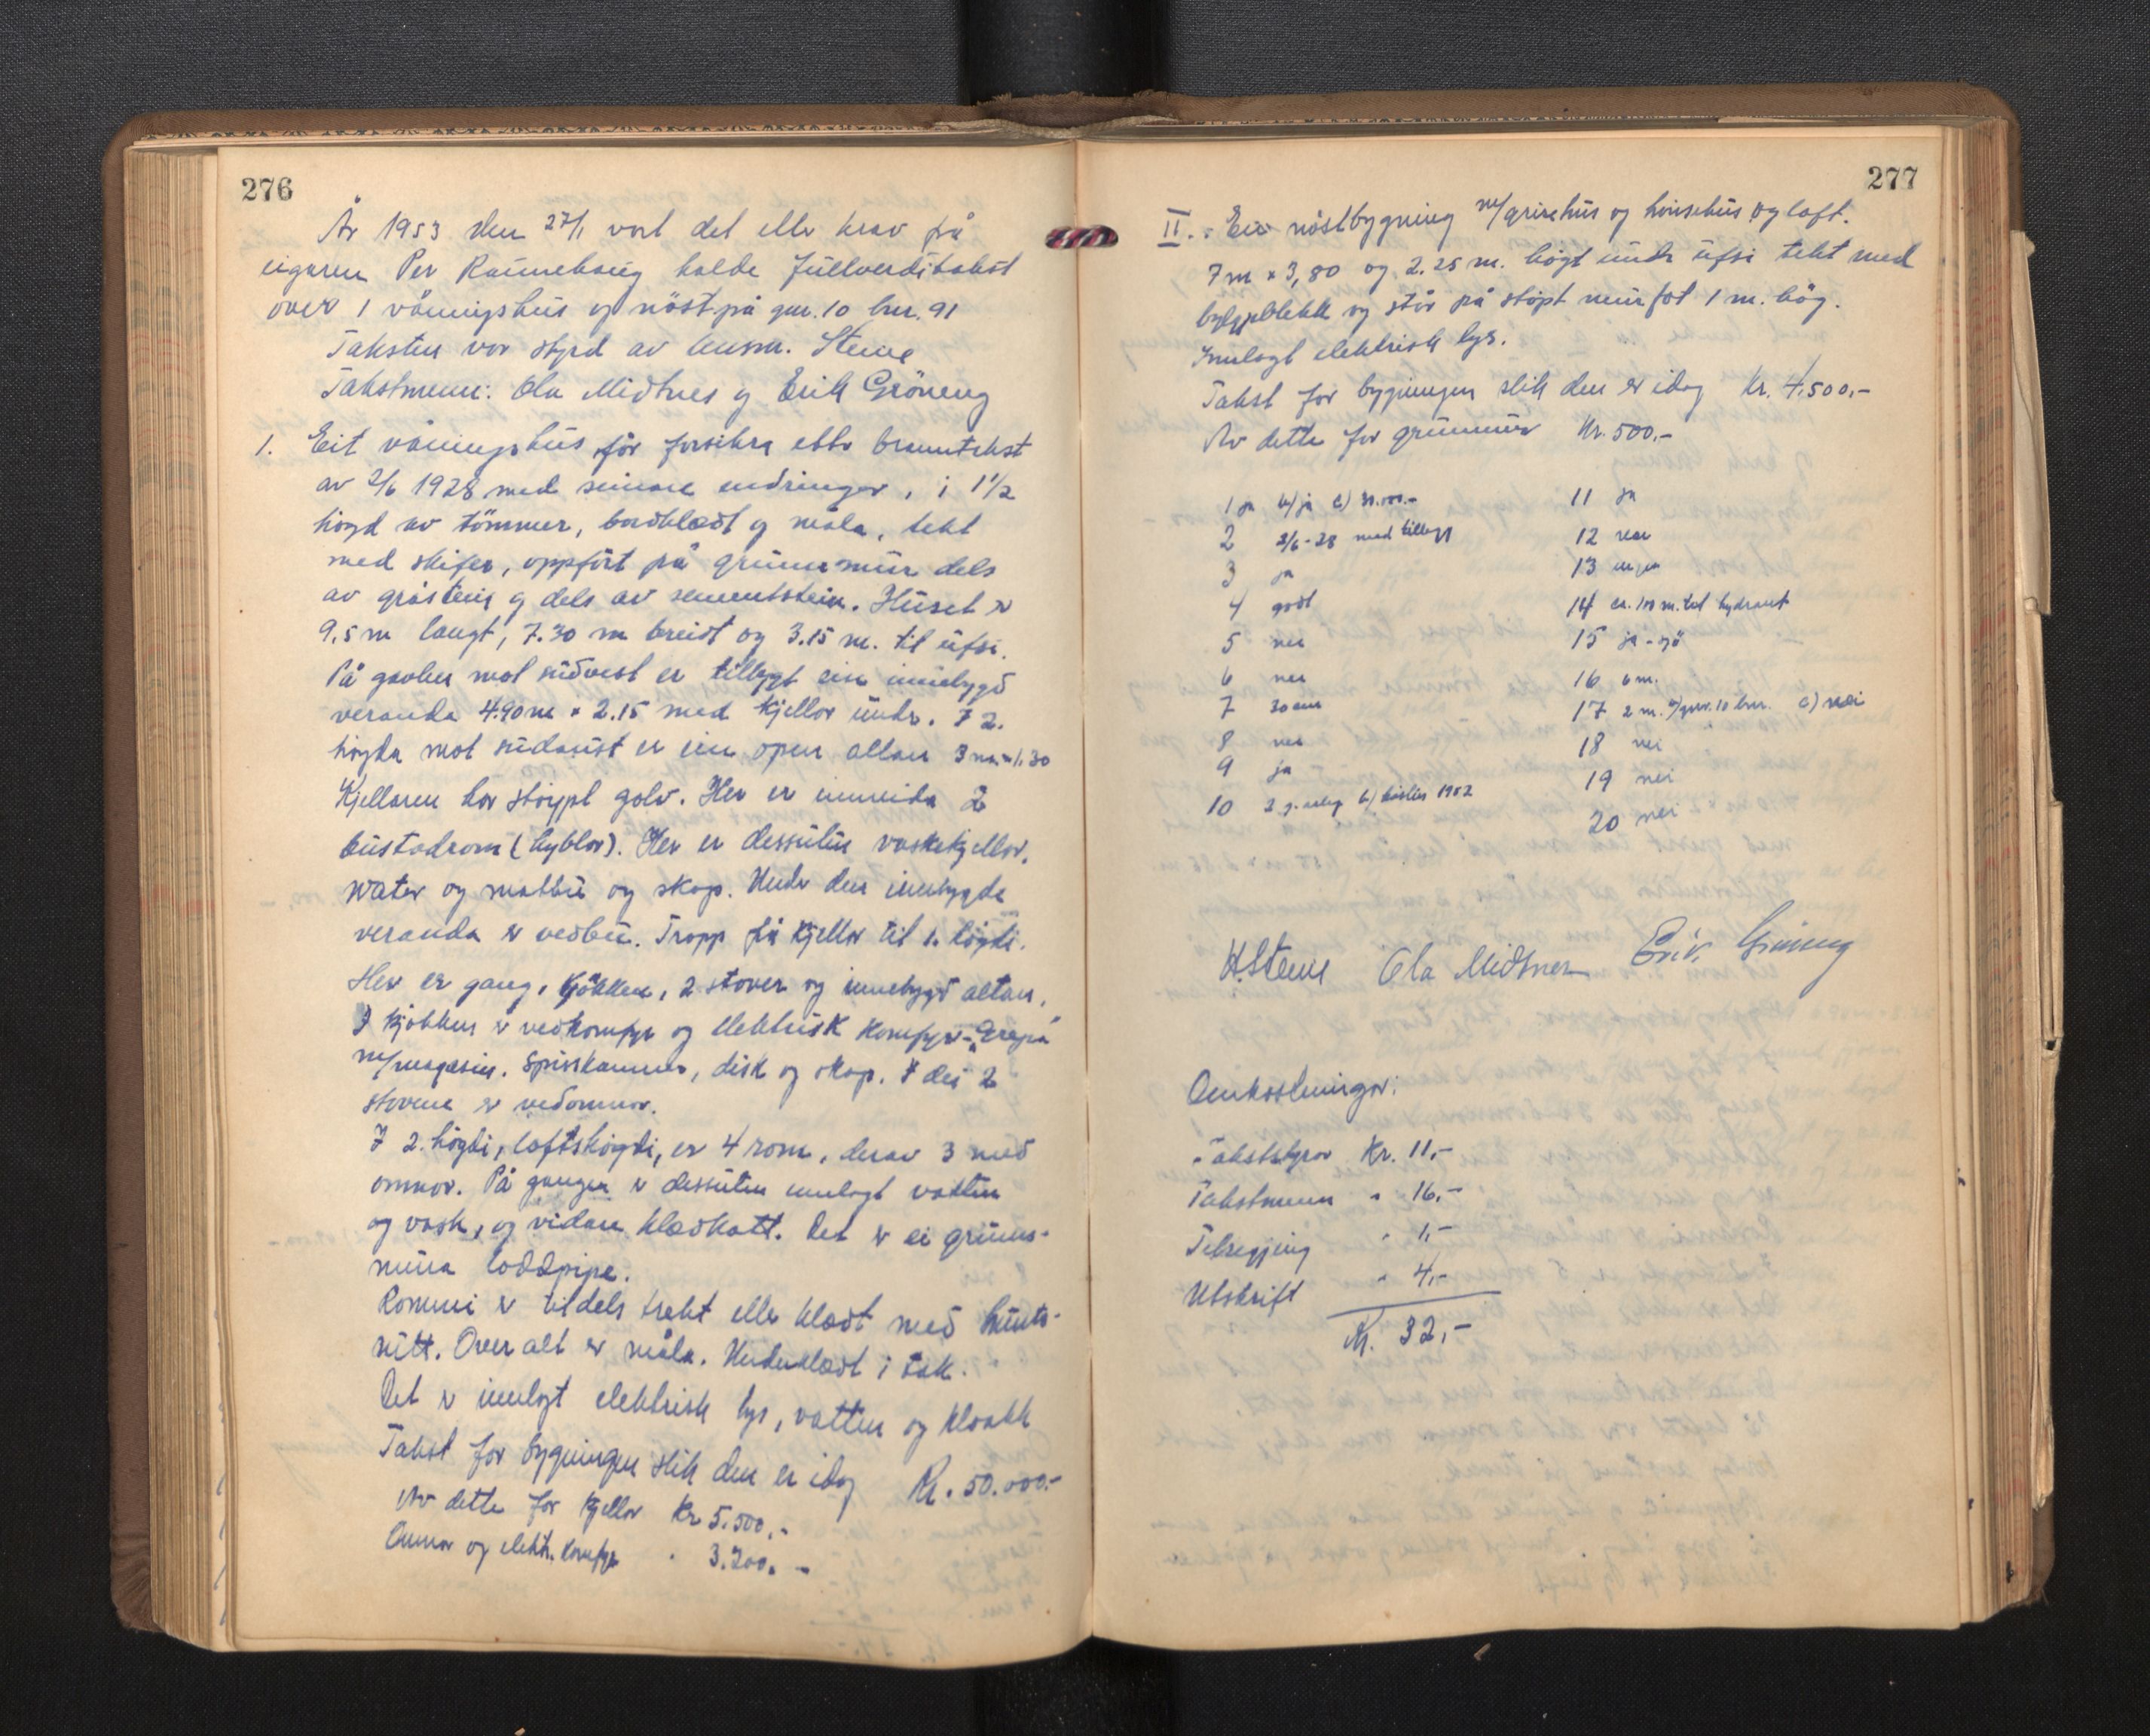 276
År 1953 den 27/1 vart det etter krav på
eigaren Per Raunehaug halde fullverditakst
over 1 våningshus og nöst på gnr. 10 bnr. 91
Taksten var styrd av lensm. Steine
Takstmenn: Ola Midtnes og Erik Gröneng
1. Eit våningshus, för forsikra etter branntakst
av 2/6 1928 med seinare endringar, i 1 1/2
högd av tömmer, bordklædt og måla, tekt
med skifer, oppfört på grunnmur dels
av gråstein og dels av sementstein. Huset er
9,5 m langt, 7.30 m breidt og 3.15 m. til ufsi.
På gavlen mot sudvest er tilbygt ein innebygd
veranda 4.90 m × 2.15 med kjellar under. I 2.
högda mot sudaust er ein open altan 3 m × 1.30
Kjellaren har stöypt golv. Her er innreida 2
bustadrom (hyblar). Her er dessutan vaskekjellar,
water og matbu og skap. Under den innbygde
veranda er vedbu. Tropp frå kjellar til 1. högdi.
Her er gang, kjökken, 2 stover og innebygd altan.
I kjökken er vedkomfyr og elektrisk komfyr - "Grepa"
m/magasin. Spiskammer, disk og skap. I dei 2
stovene er vedomnar.
I 2. högdi, loftshögdi, er 4 rom, derav 3 med
omnar. På gangen er dessutan innlagt vatten
og vask, og vidare klædkott. Det er ei grunn-
mura loddpipe.
Rommi er tildels trekt eller klædt med hunto-
nitt. Over alt er måla. Underklædt i tak.
Det er innlagt elektrisk lys, vatten og kloakk
Takst for bygningen slik den er idag Kr. 50.000.-
Av dette for kjellar Kr 5.500.-
Omnar og elektr. komfyr " 3.200.-
277
II. Ein nöstbygning m/grisehus og hönsehus og loft.
7 m × 3,80 og 2.25 m. högt under ufsi tekt med
bylgjeblekk og står på stöpt murfot 1 m. hög.
Innlagt elektrisk lys.
Takst for bygningen slik den er idag Kr. 4.500.-
Av dette for grunnmur Kr. 500.-
1 ja b/ ja c)
2 2/6-28 med tillegg
3 ja
4 godt
5 nei
6 nei
7
8 nei
9 ja
10 1952
11 ja
12
13 ingen
14 ca. 100 m. til hydrant
15 ja - sjö
16 6 m.
17 2 m. gnr. 10 bnr. c) nei
18 nei
19 nei
20 nei
H. Steine Ola Midtnes Erik Gröneng
Omkostningar:
Takststyrar Kr. 11,-
Takstmenn " 16,-
Tilsegjing " 1,-
Utskrift " 4,-
Kr. 32,-